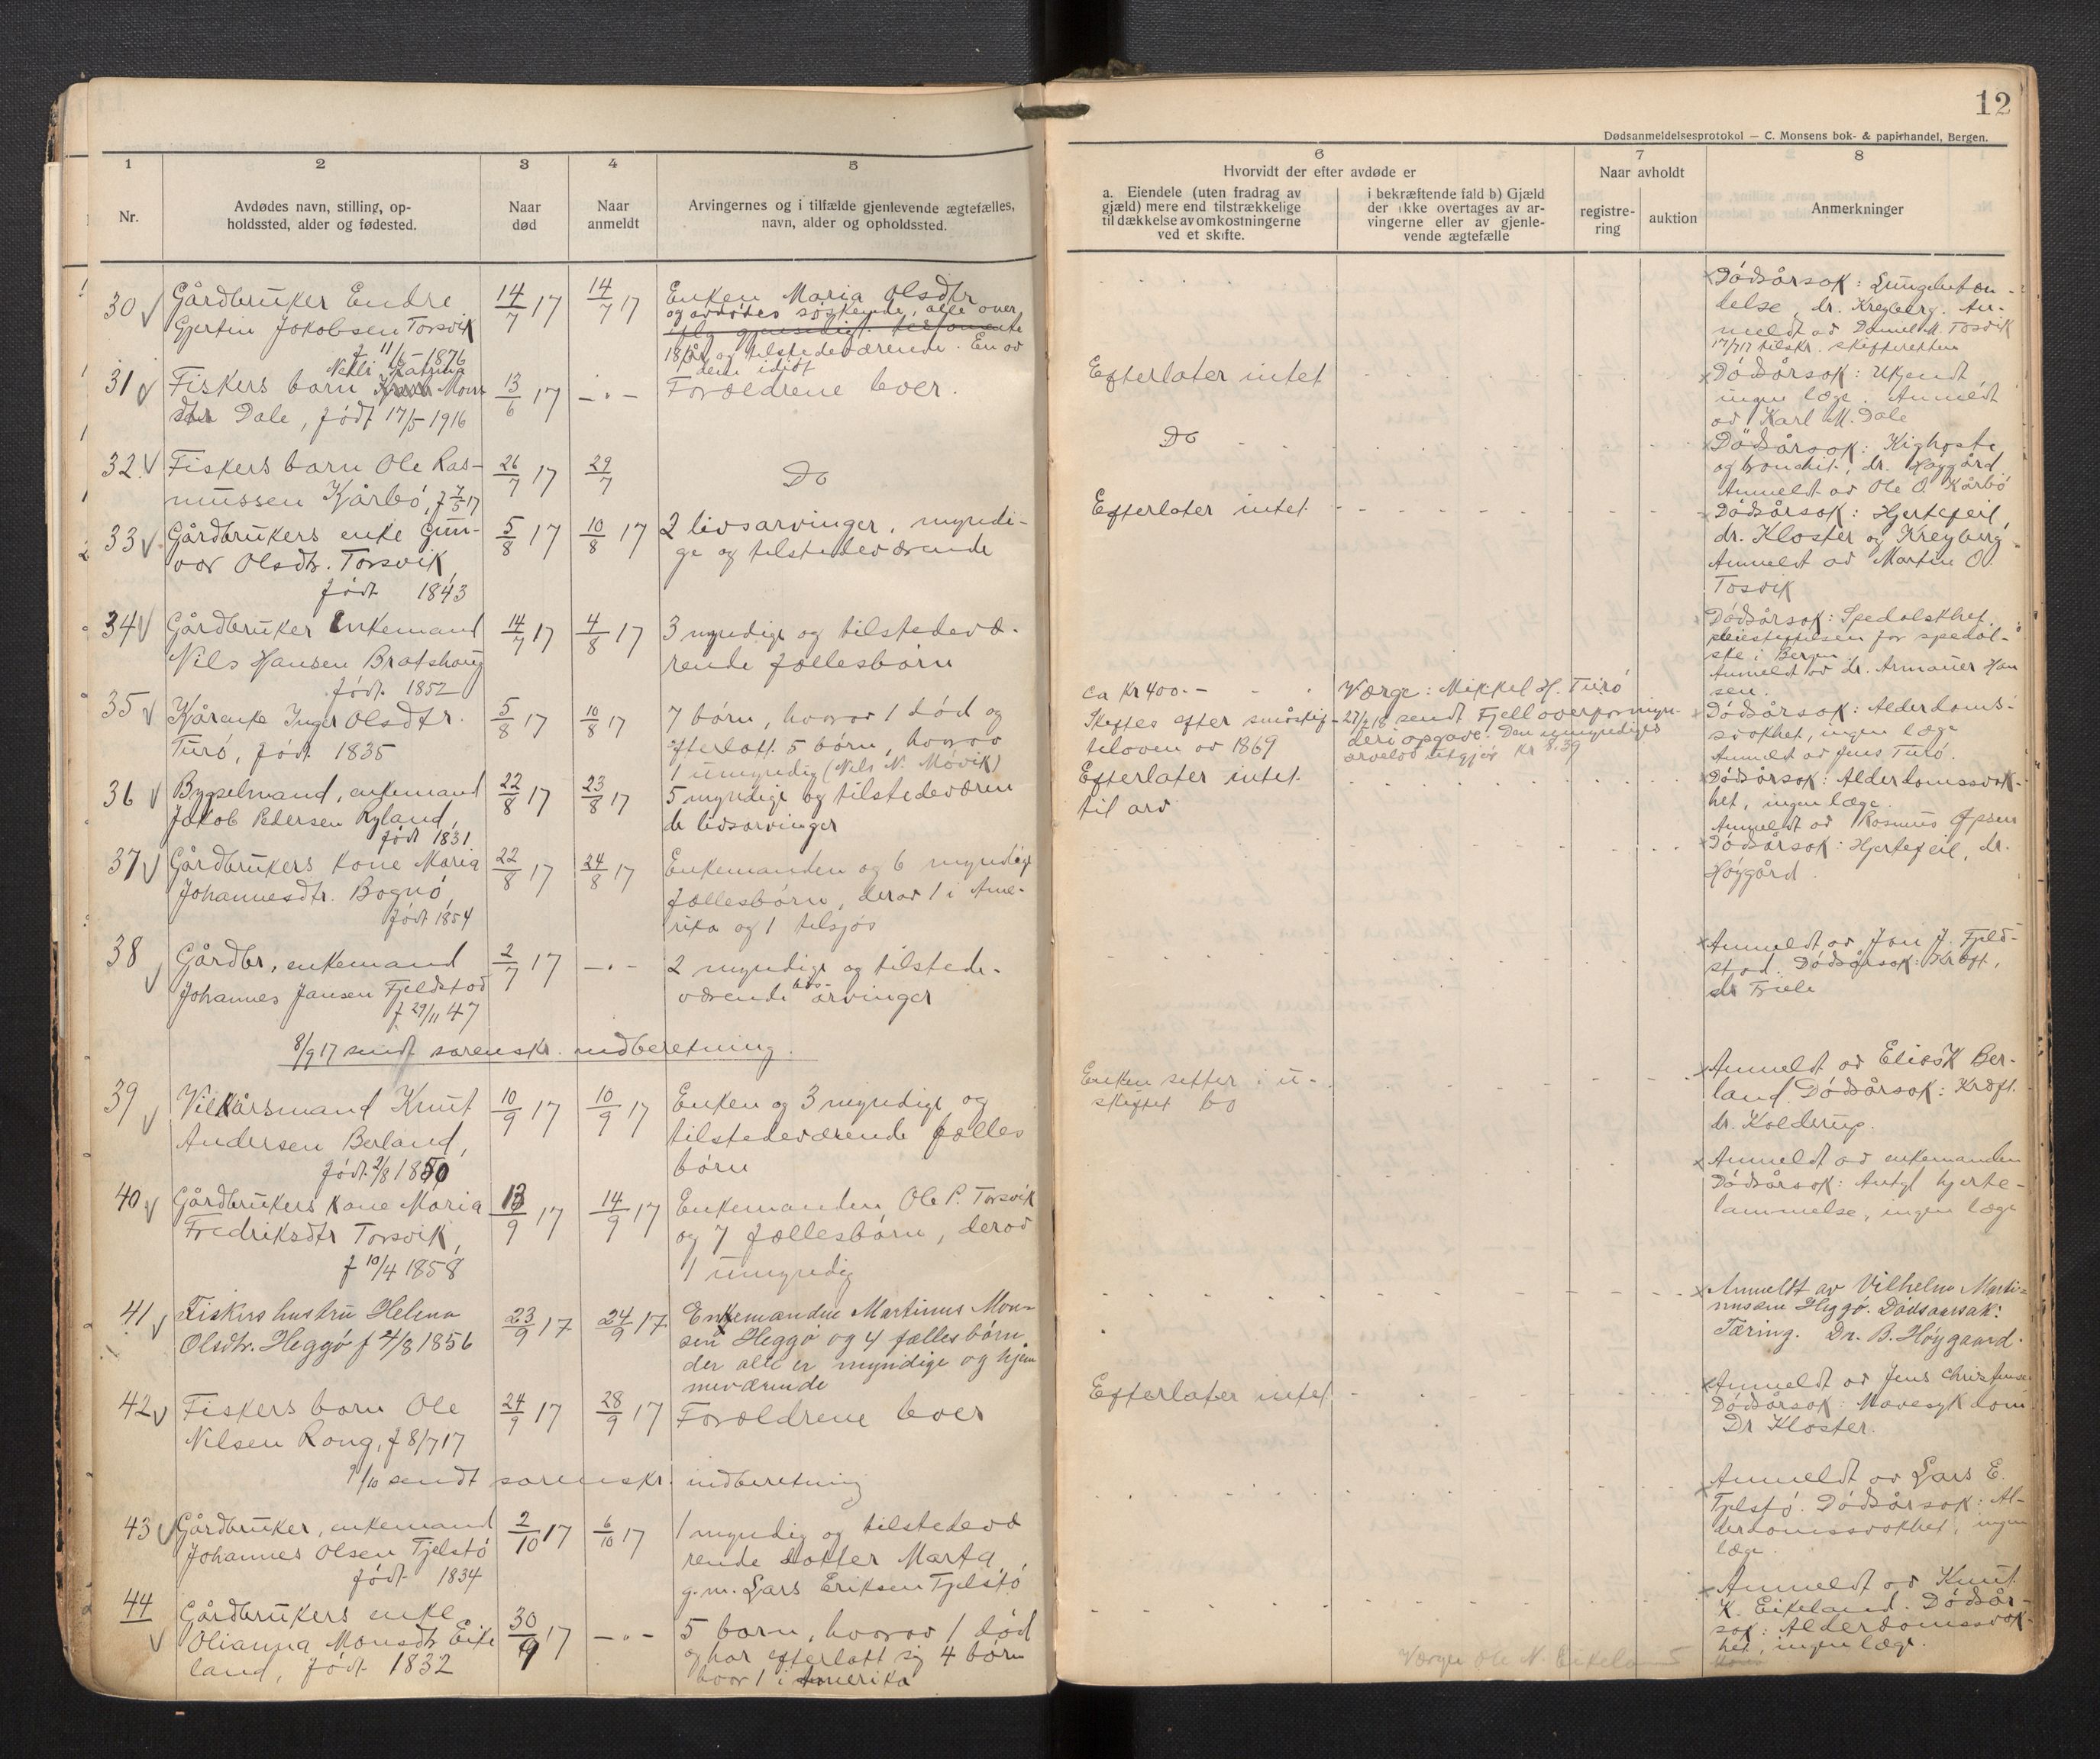 12
Dødsanmeldelsesprotokol — C. Monsens bok- & papirhandel, Bergen.
1
2
3
4
5
Nr.
Avdødes navn, stilling, op-
holdssted, alder og fødested.
Naar
død
Naar
anmeldt
Arvingernes og i tilfælde gjenlevende ægtefælles,
navn, alder og opholdssted.
6
Hvorvidt der efter avdøde er
a. Eiendele (uten fradrag av
gjæld) mere end tilstrækkelige
til dækkelse av omkostningerne
ved et skifte.
i bekræftende fald b) Gjæld
der ikke overtages av ar-
vingerne eller av gjenle-
vende ægtefælle
7
Naar avholdt
registre-
ring
auktion
8
Anmerkninger
30
Gårdbruker Endre
Gjertin Jakobsen Torsvik
f 11/6-1876
14/7 17
14/7 17
Enken Maria Olsdtr
og avdødes söskende, alle over
ifølg gjensidigt testamente
18 år og tilstedeværende. En av
dem idiot
Dödsårsak: Lungebetæn-
delse, dr. Kreyberg. An-
meldt av Daniel M. Tosvik
17/7 17 tilskr. skifteretten
31
Nelli Katrina
Fiskers barn Mons
dtr Dale, født 17/5-1916
13/6 17
-"-
Forældrene lever.
Efterlater intet
Dödsårsak: Ukjendt
ingen læge. Anmeldt
av Karl M. Dale
32
Fiskers barn Ole Ras-
mussen Kårbö, f 7/5 17
26/7 17
29/7
Do
Do
Dödsårsak: Kighoste
og bronchit, dr. Høygård
Anmeldt av Ole O. Kårbö
33
Gårdbrukers enke Gun-
vor Olsdtr. Torsvik
født 1843
5/8 17
10/8 17
2 livsarvinger, myndi-
ge og tilstedeværende
Efterlater intet
Dödsårsak: Hjertefeil,
dr. Kloster og Kreyberg.
Anmeldt av Martin O.
Tosvik
34
Gårdbruker Enkemand
Nils Hansen Bratshaug
født 1852
14/7 17
4/8 17
3 myndige og tilstedevæ-
rende fællesbörn
Dödsårsak: Spedalskhet.
pleiestiftelsen for spedal-
ske i Bergen
Anmeldt av dr. Armauer Han
sen.
35
Kårenke Inger Olsdtr.
Turö, født 1835
5/8 17
10/8 17
7 börn, hvorav 1 död og
efterlatt 5 börn, hvorav
1 umyndig (Nils N. Mövik)
ca Kr 400.-
Skiftes efter småskif-
teloven av 1869
Værge: Mikkel H. Turö
27/2 18 sendt Fjell overformyn-
deri opgave. Den umyndiges
arvelod utgjør kr 8.39
Dödsårsak: Alderdoms-
svakhet, ingen læge
Anmeldt av Jens Turö.
36
Bygselmand, enkemand
Jakob Pedersen Ryland,
født 1831.
22/8 17
23/8 17
5 myndige og tilstedeværen
de livsarvinger
Efterlater intet
til arv
Dödsårsak: Alderdomssvak-
het, ingen læge.
Anmeldt av Rasmus
37
Gårdbrukers kone Maria
Johannesdtr. Bognö,
født 1854
22/8 17
24/8 17
Enkemanden og 6 myndige
fællesbörn, derav 1 i Ame-
rika og 1 tilsjøs
Dödsårsak: Hjertefeil, dr.
Høygård.
38
Gårdbr., enkemand
Johannes Jansen Fjeldstad
f 29/11 47
2/7 17
-"-
2 myndige og tilstede-
værende livs-arvinger
Anmeldt av Jan J. Fjeld-
stad. Dödsårsak: Kræft,
dr Friele
8/9 17 sendt sorenskr. indberetning.
39
Vilkårsmand Knut
Andersen Berland,
født 2/8 1850
10/9 17
10/9 17
Enken og 3 myndige og
tilstedeværende fælles
börn
Enken sitter i u-
skiftet bo
Anmeldt av Elias K Ber-
land. Dödsårsak: Kræft.
dr. Kolderup.
40
Gårdbrukers kone Maria
Fredriksdtr Torsvik,
f 10/4 1858
13/9 17
14/9 17
Enkemanden Ole P. Torsvik
og 7 fællesbörn, derav
1 umyndig
Anmeldt av enkemanden
Dödsårsak: Antgl hjerte-
lammelse, ingen læge
41
Fiskers hustru Helena
Olsdtr. Heggö f 4/8 1856
23/9 17
24/9 17
Enkemanden Martinus Mon-
sen Heggö og 4 fælles börn
der alle er myndige og hjem
meværende
Anmeldt av Vilhelm Marti-
nussen Heggö. Dødsaarsak:
Tæring. Dr. B. Høygaard.
42
Fiskers barn Ole
Nilsen Rong, f 8/7 17
24/9 17
28/9 17
Forældrene lever
Efterlater intet
Anmeldt av Jens Christensen
Dödsårsak: Mavesykdom
Dr Kloster.
1/10 sendt sorenskr. indberetning
43
Gårdbruker, enkemand
Johannes Olsen Tjelstö
født 1834
2/10 17
6/10 17
1 myndig og tilstedevæ
rende datter Marta,
g.m. Lars Eriksen Tjelstö
Anmeldt av Lars E.
Tjelstö. Dödsårsak: Al-
derdomssvakhet, ingen
læge.
44
Gårdbrukers enke
Olianna Monsdtr Eike
land, født 1832
30/9 17
-"-
5 barn, hvorav 1 död
og har efterlatt sig 4 börn
hvorav 1 i Amerika
Værge Ole N. Eikeland
Anmeldt av Knut
K. Eikeland. Dödsår-
sak: Alderdomssvak-
het, ingen læge.